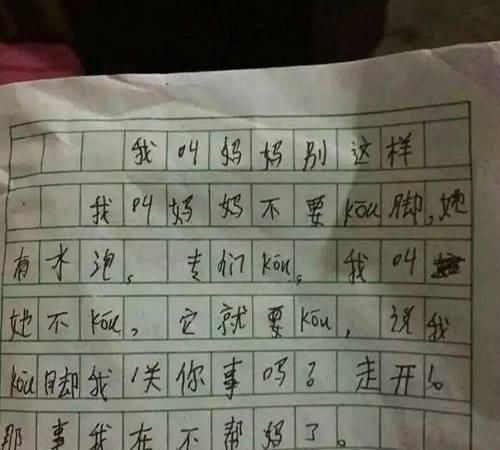 我叫妈妈别这样
我叫妈妈不要kōu脚,她
有水泡。专们kōu。我叫
她不kōu,它就要kōu,说我
kōu脚我关你事吗?走开!。
那事我在不帮妈了。